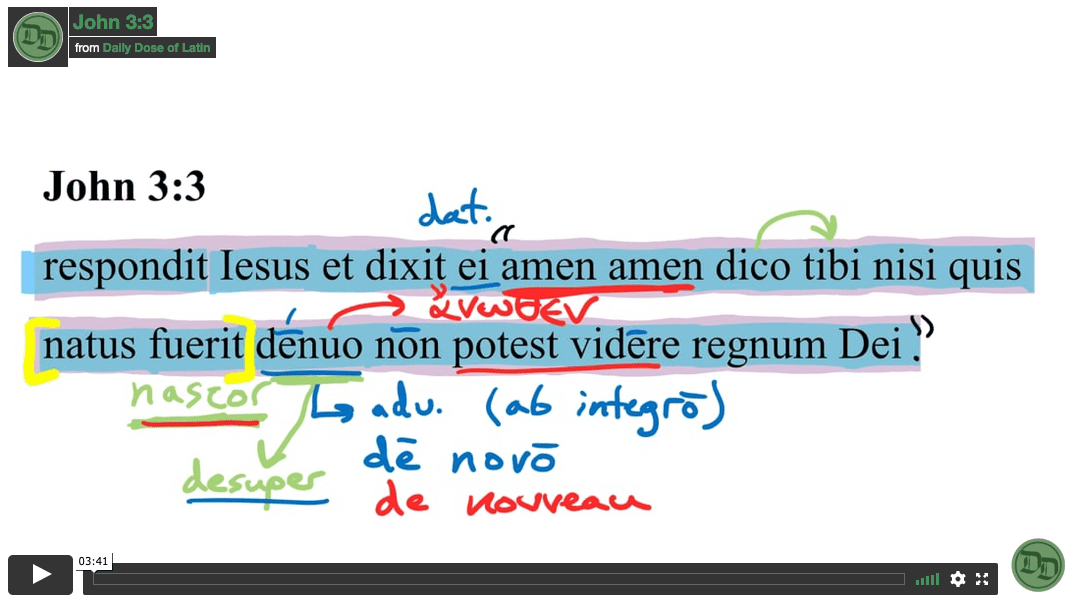 John 3:3
from Daily Dose of Latin
John 3:3
dat.
respondit Iesus et dixit ei “ amen amen dico tibi nisi quis
ἄνωθεν
natus fuerit dēnuo nōn potest vidēre regnum Dei . ”
nascor
↳ adv. (ab integrō)
desuper
dē novō
de nouveau
03:41
DD
DD